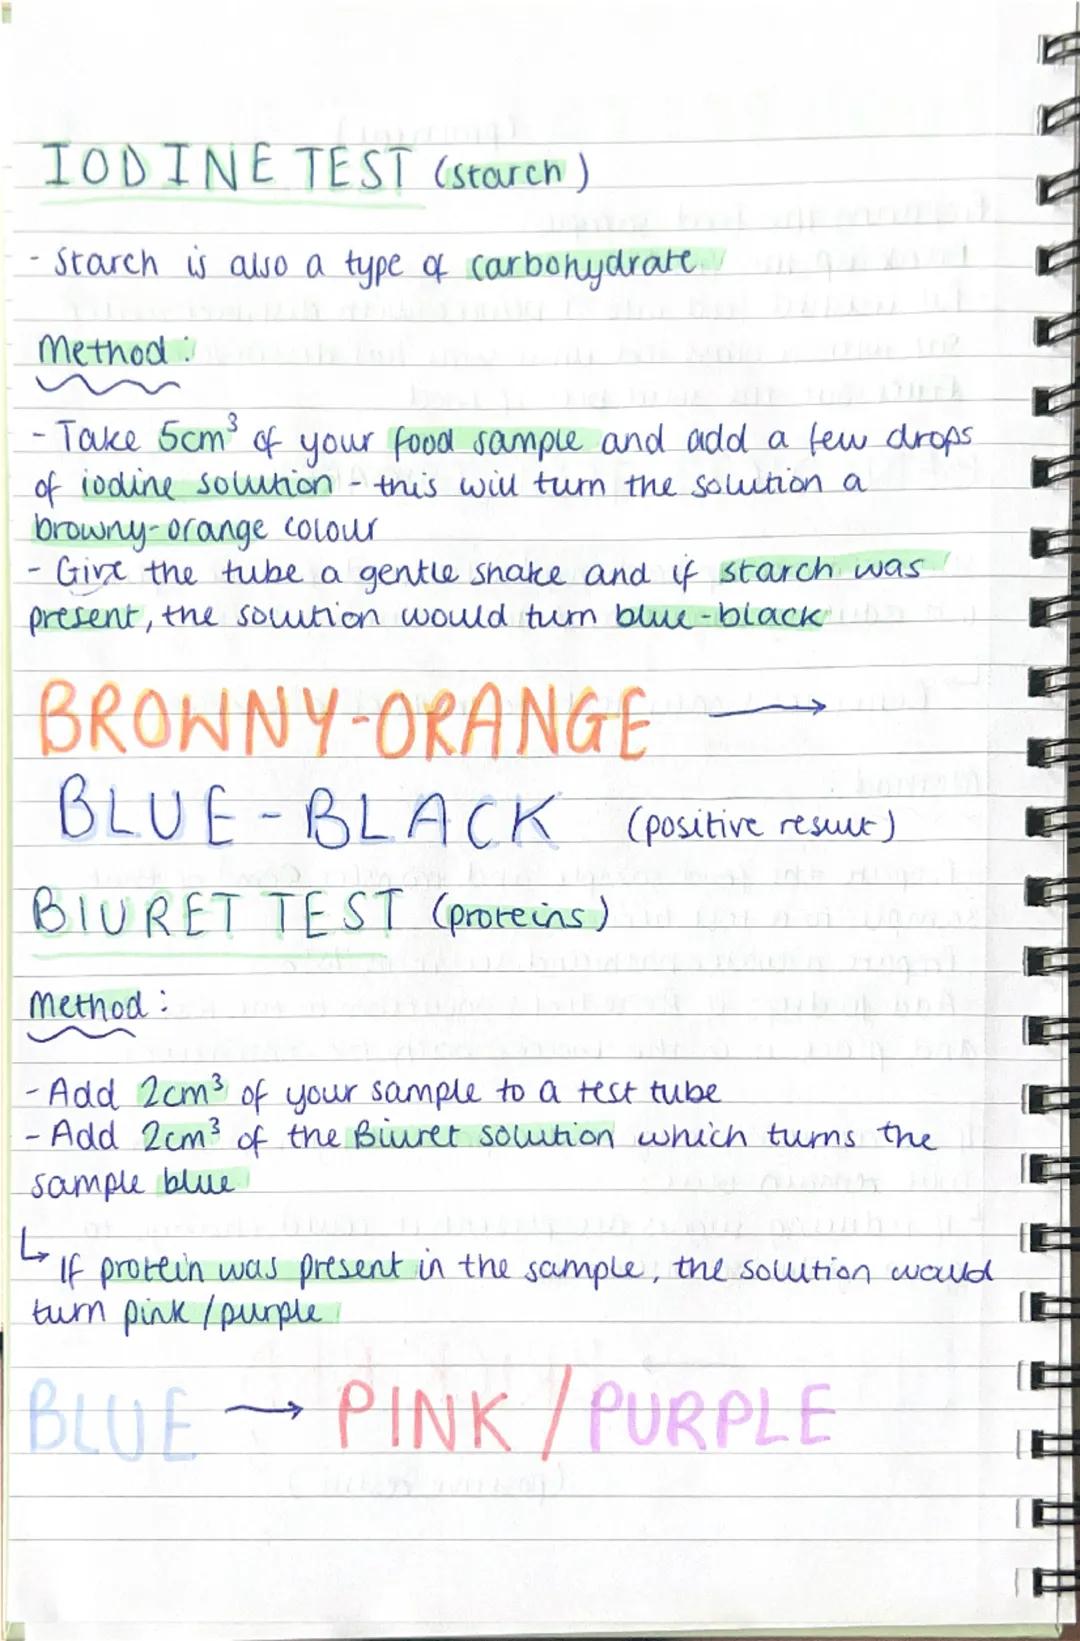 IODINE TEST (starch)
- Starch is also a type of carbohydrate
Method:
- Take 5cm³ of your food sample and add a few drops
of iodine solution - this will turn the solution a
browny-orange colour
- Give the tube a gentle shake and if starch was
present, the solution would turn blue-black
BROWNY-ORANGE →
BLUE-BLACK (positive result)
BIURET TEST (proteins)
Method:
- Add 2cm³ of your sample to a test tube
- Add 2cm³ of the Biuret solution which turns the
sample blue
↳ If protein was present in the sample, the solution would
turn pink/purple
BLUE → PINK/PURPLE